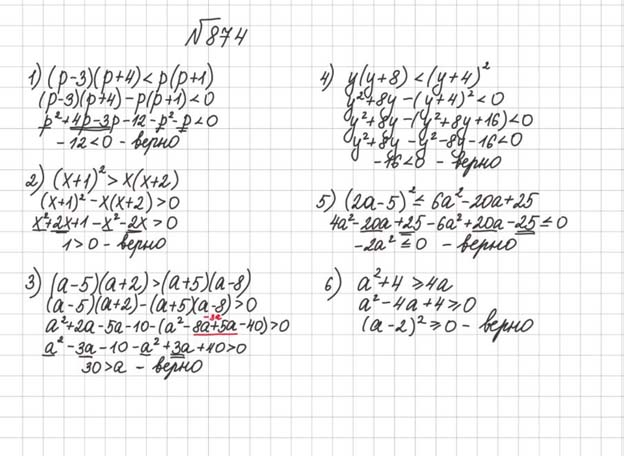 №874
1) (p-3)(p+4)<p(p+1)
(p-3)(p+4)-p(p+1)<0
p²+4p-3p-12-p²-p<0
-12<0 - верно
2) (x+1)²>x(x+2)
(x+1)²-x(x+2)>0
x²+2x+1-x²-2x>0
1>0 - верно
3) (a-5)(a+2)>(a+5)(a-8)
(a-5)(a+2)-(a+5)(a-8)>0
-3a
a²+2a-5a-10-(a²-8a+5a-40)>0
a²-3a-10-a²+3a+40>0
30>a - верно
4) y(y+8)<(y+4)²
y²+8y-(y+4)²<0
y²+8y-(y²+8y+16)<0
y²+8y-y²-8y-16<0
-16<0 - верно
5) (2a-5)²≤6a²-20a+25
4a²-20a+25-6a²+20a-25≤0
-2a²≤0 - верно
6) a²+4≥4a
a²-4a+4≥0
(a-2)²≥0 - верно